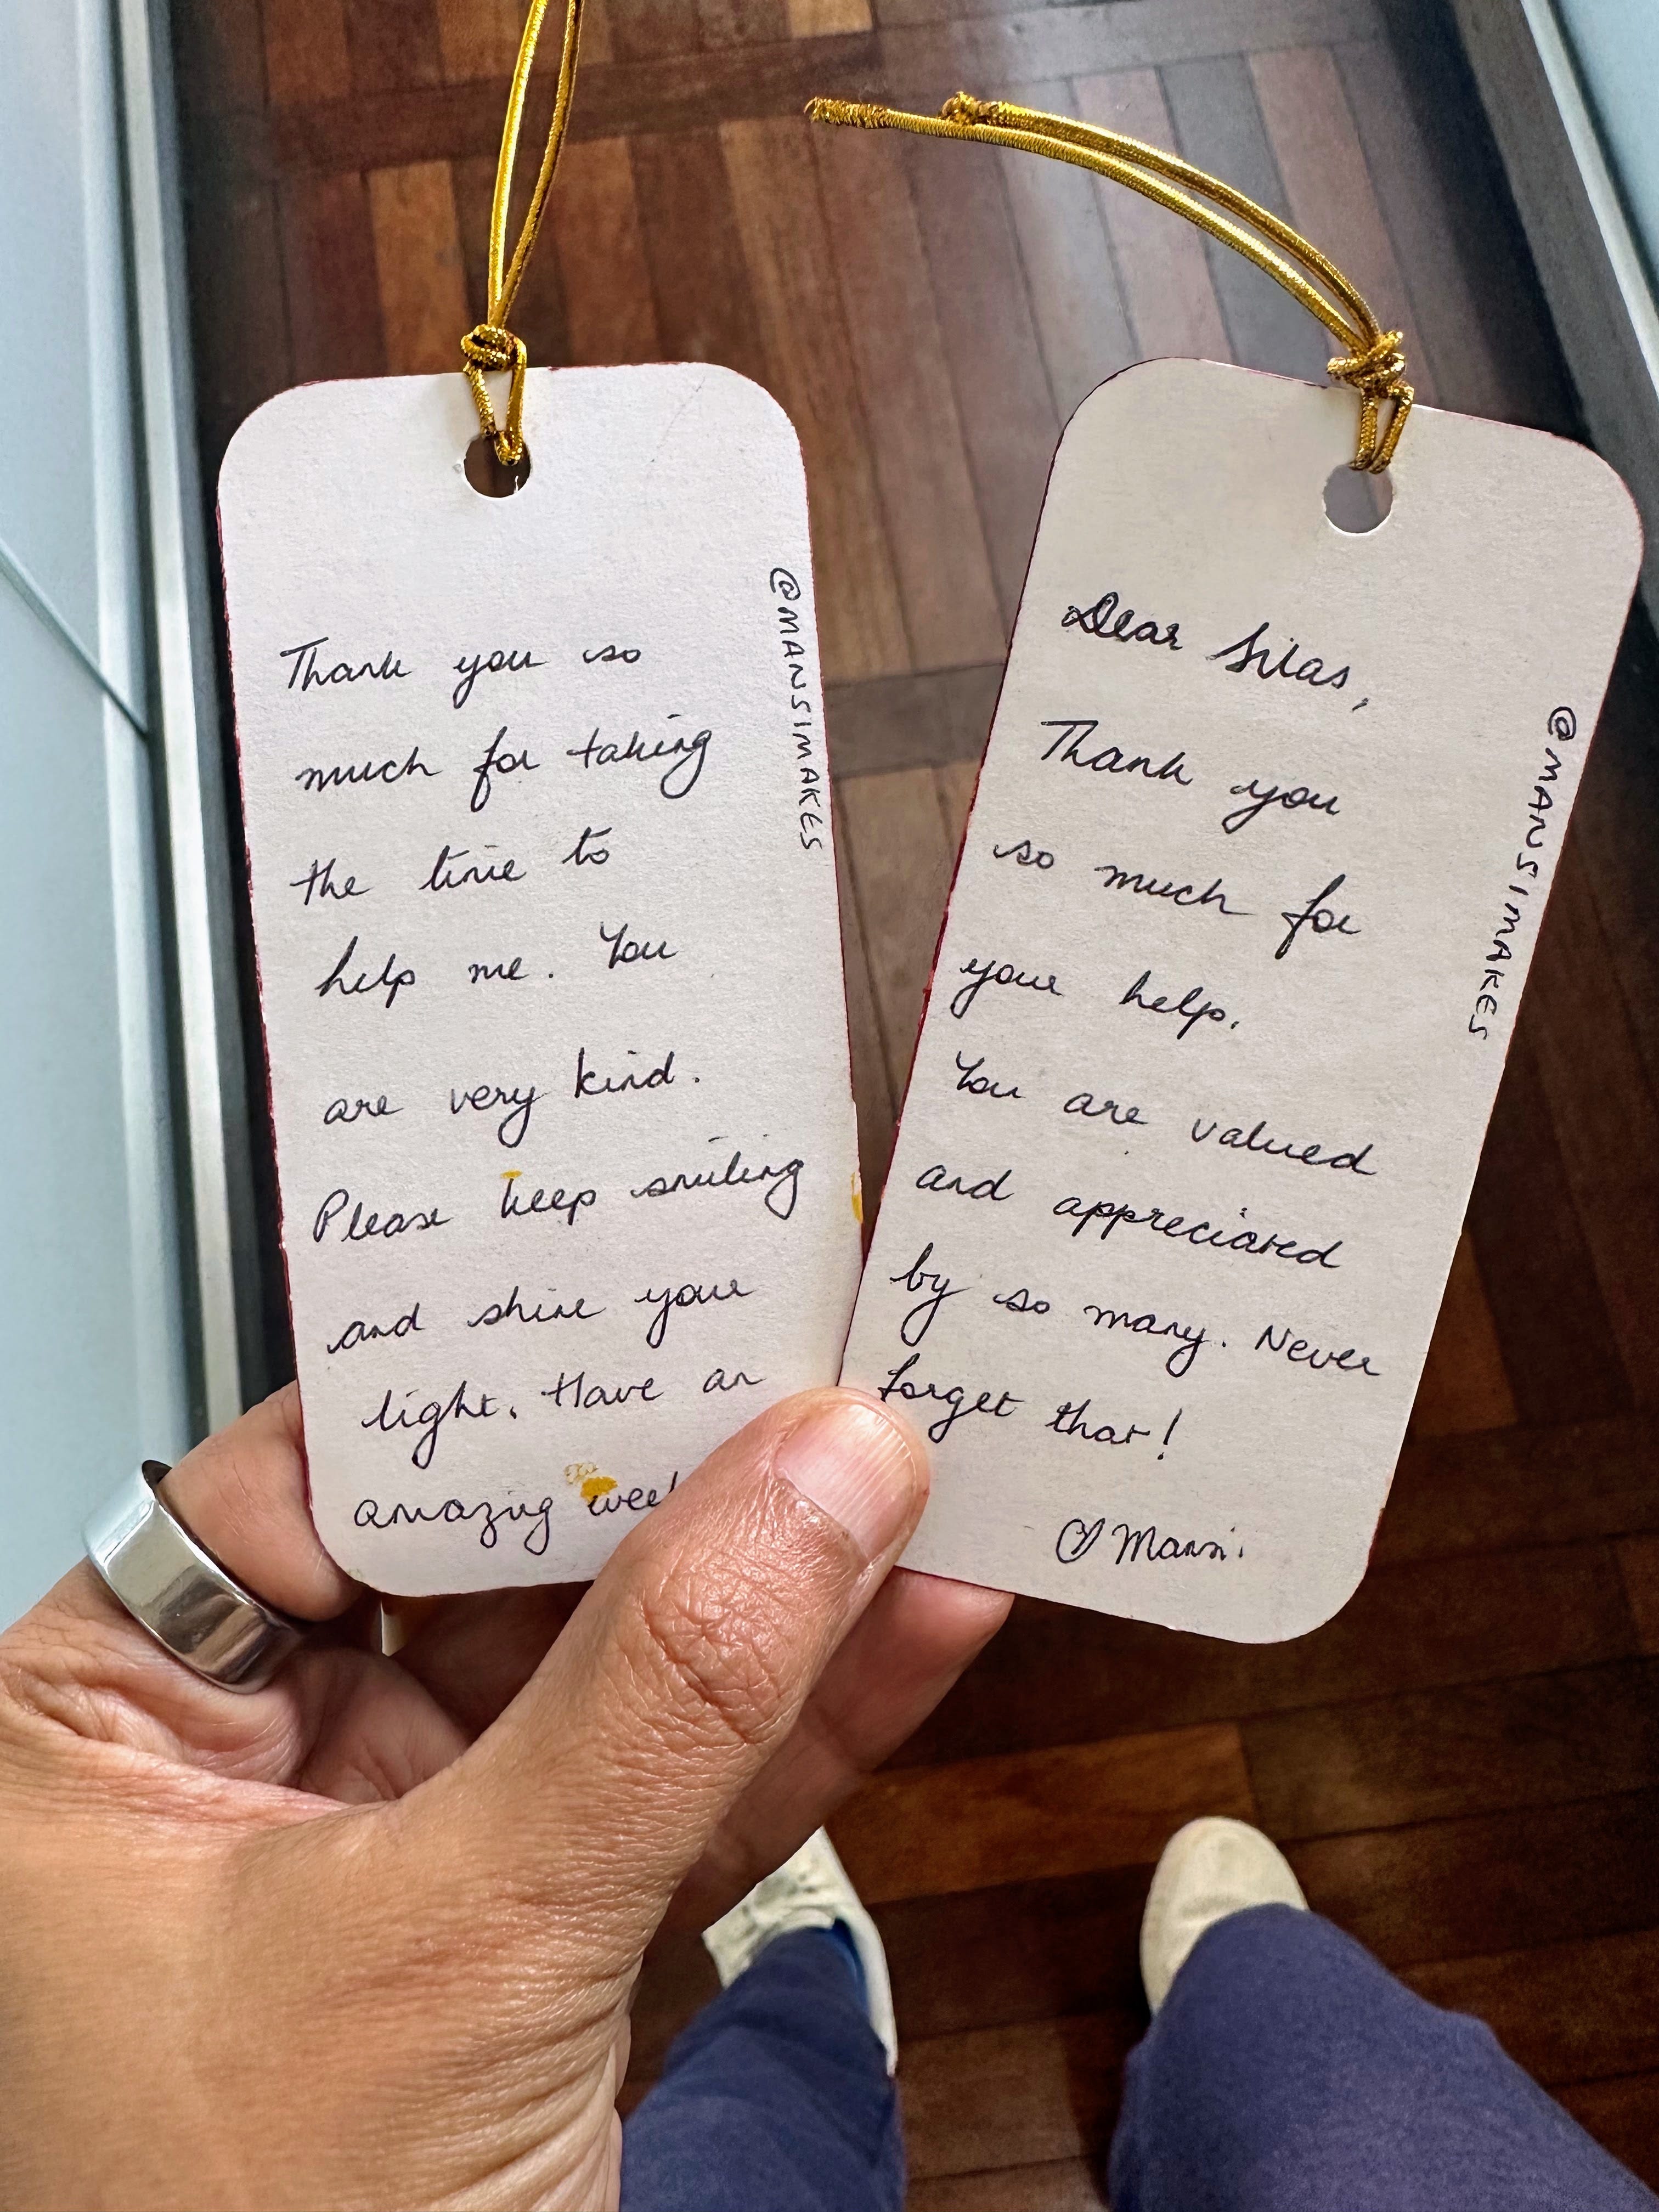 Thank you so
much for taking
the time to
help me. You
are very kind.
Please keep smiling
and shine your
light. Have an
amazing
@MANSIMAKES
Dear Silas,
Thank you
so much for
your help.
You are valued
and appreciated
by so many. Never
forget that!
Mansi.
@MANSIMAKES